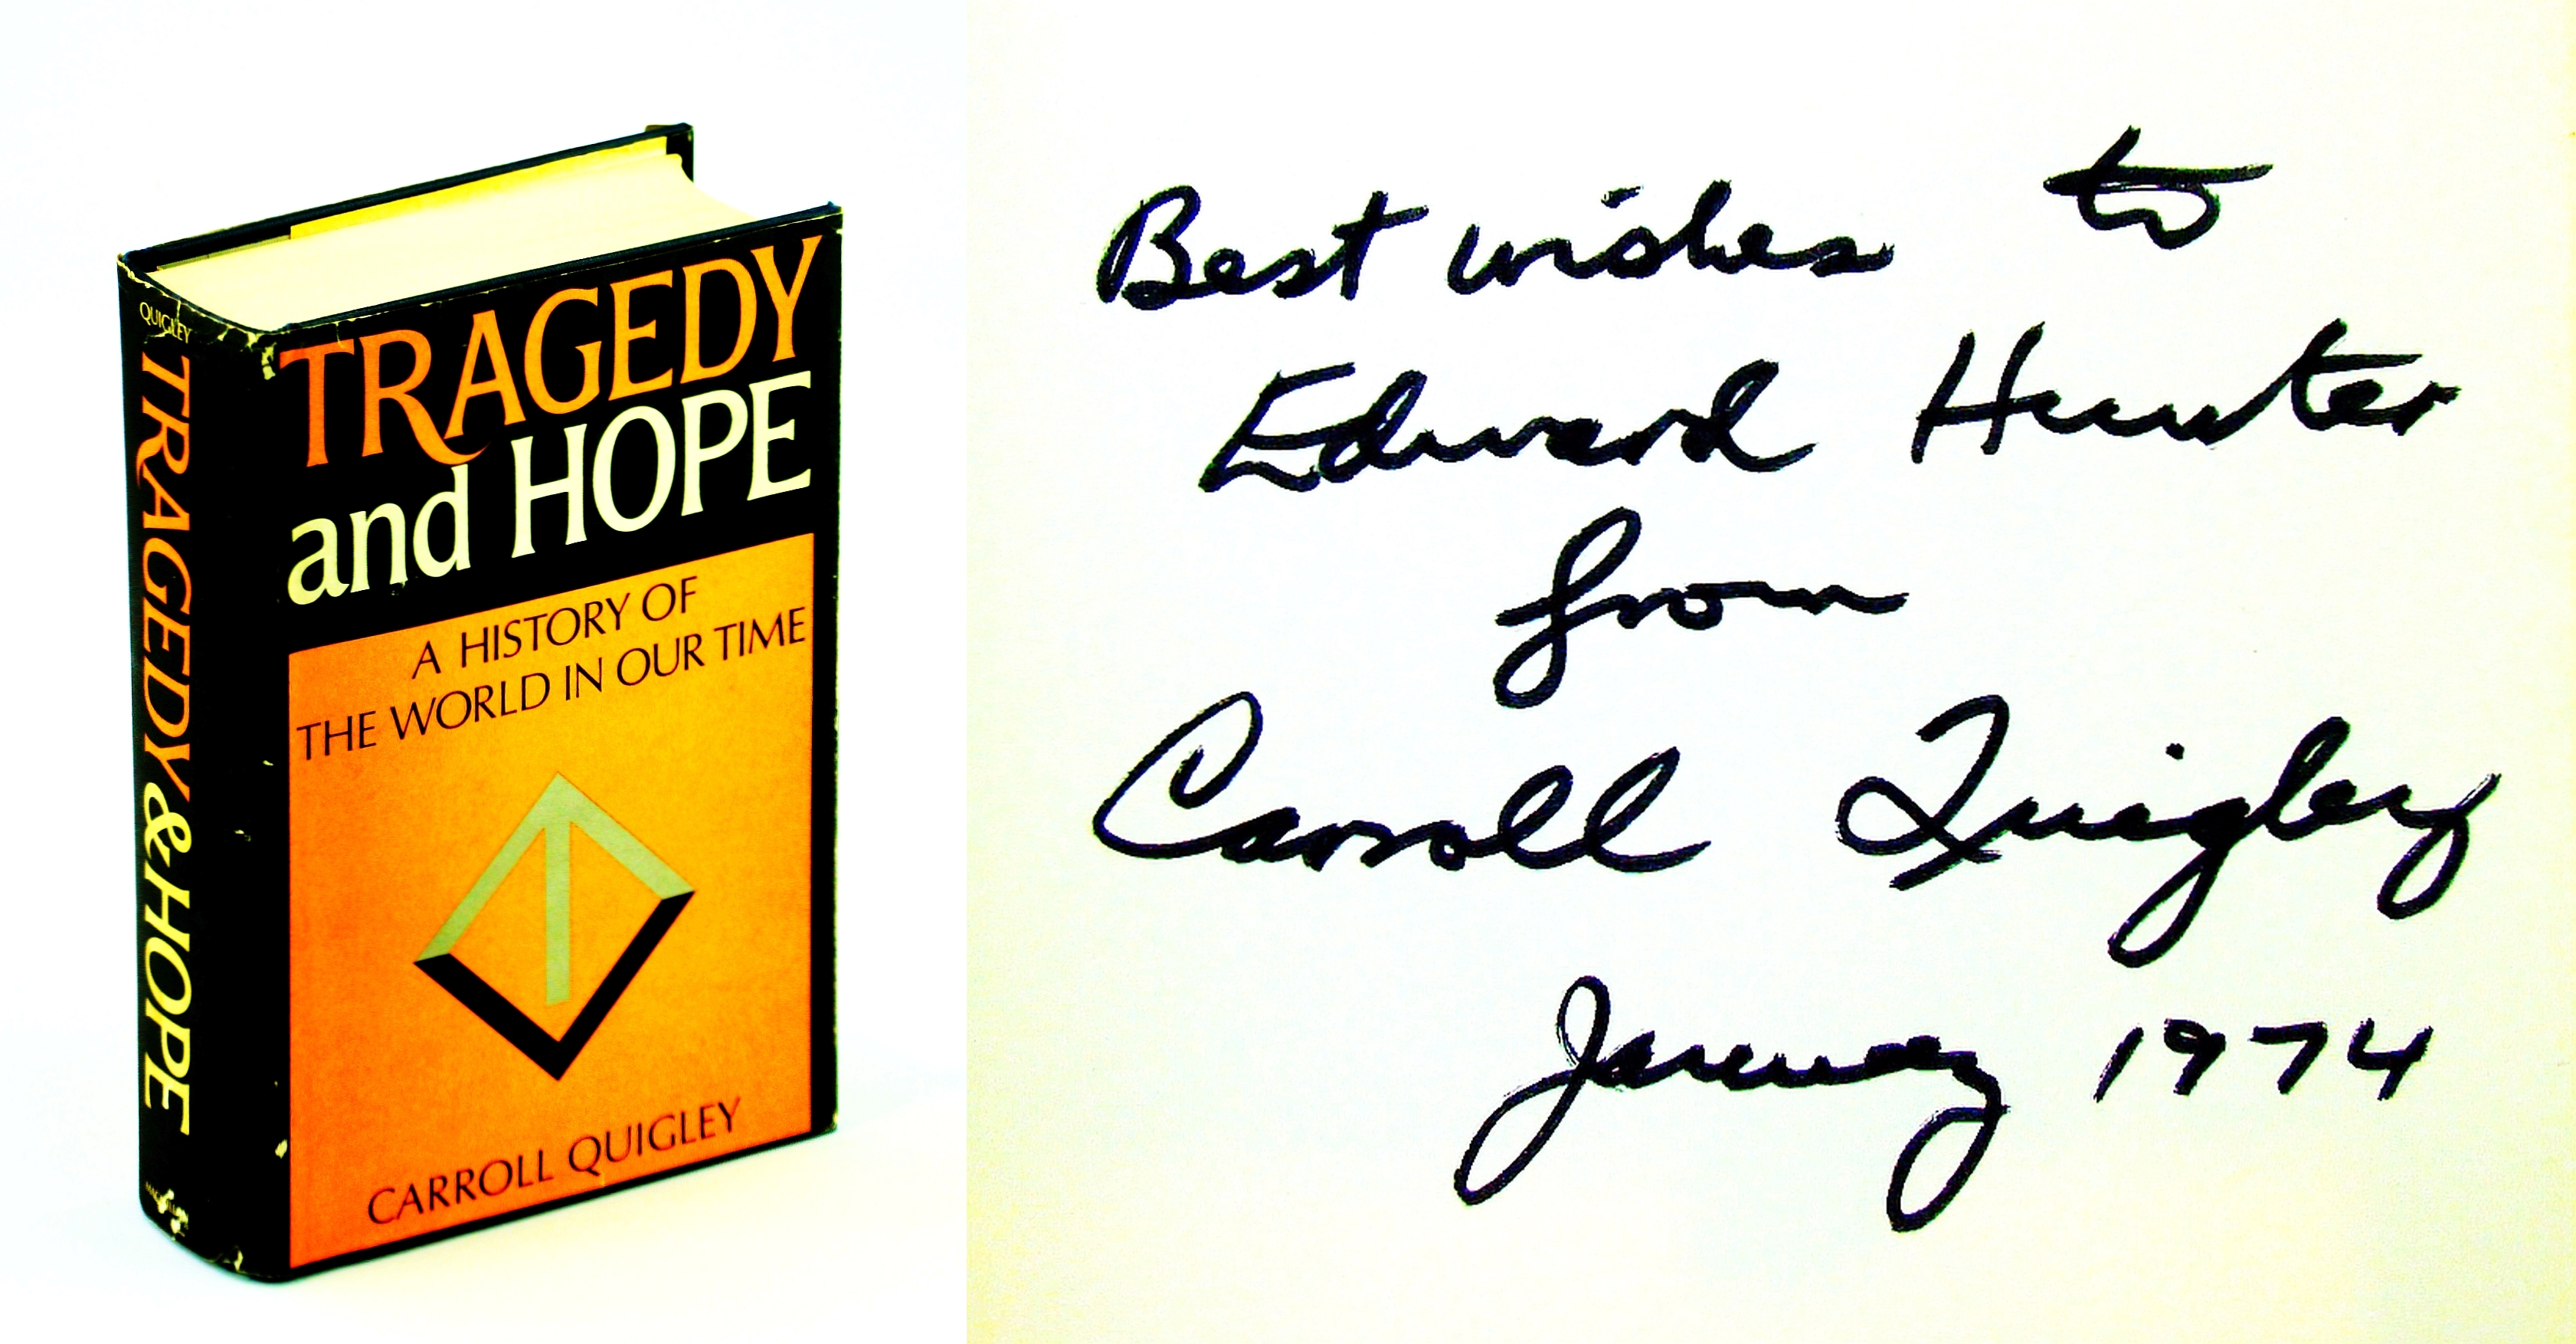 QUIGLEY
TRAGEDY & HOPE
TRAGEDY
and HOPE
A HISTORY OF
THE WORLD IN OUR TIME
CARROLL QUIGLEY
Best wishes to
Edward Hunter
from
Carroll Quigley
January 1974